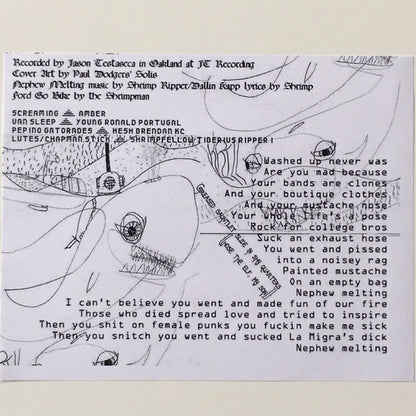 Recorded by Jason Testasecca in Oakland at JT Recording
Cover Art by Paul Dodgers' Solis
Nephew Melting music by Shrimp Ripper/Dallin Kapp lyrics by Shrimp
Ford Go Bike by the Shrimpman
SCREAMING AMBER
VAN SLEEP YOUNG RONALD PORTUGAL
PEPINO GATORADES HESH BRENDAN KC
LUTES/CHAPMAN STICK SHRIMPFELLOW TIBERIUS RIPPER I
GREASED GAUNTLET SLIDE IN MY QUARTERS
HOSE THE ELF MY SON
Washed up never was
Are you mad because
Your bands are clones
And your boutique clothes
And your mustache hose
Your whole life's a hose
Rock for college bros
Suck an exhaust hose
You went and pissed
into a noisey rag
Painted mustache
On an empty bag
Nephew melting
I can't believe you went and made fun of our fire
Those who died spread love and tried to inspire
Then you shit on female punks you fuckin make me sick
Then you snitch you went and sucked La Migra's dick
Nephew melting